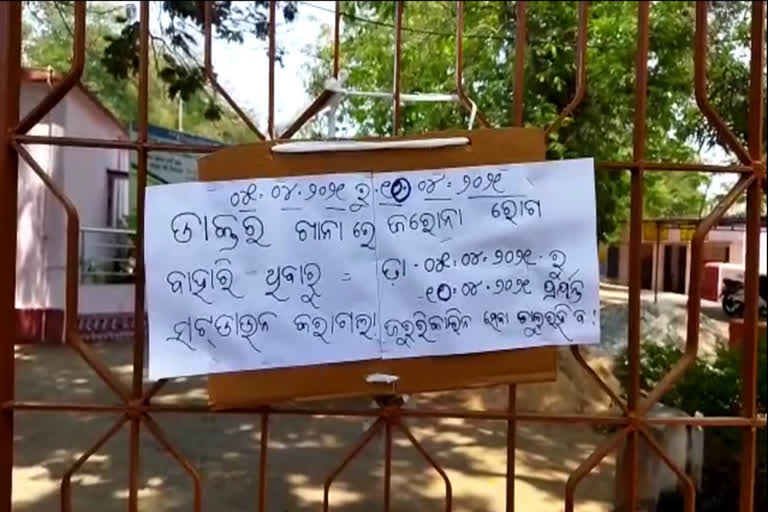 ୦୫.୦୪.୨୦୨୧ ରୁ ୧୦.୦୪.୨୦୨୧
ଡାକ୍ତର ଖାନା ରେ କରୋନା ରୋଗ
ବାହାରି ଥିବାରୁ = ତା.୦୫.୦୪.୨୦୨୧.ରୁ
୧୦.୦୪.୨୦୨୧ ପର୍ଯ୍ୟନ୍ତ
ସଟ୍‌ଡାଉନ କରାଗଲା ଜରୁରିକାଳିନ ସେବା ଚାଲୁରହିବ !